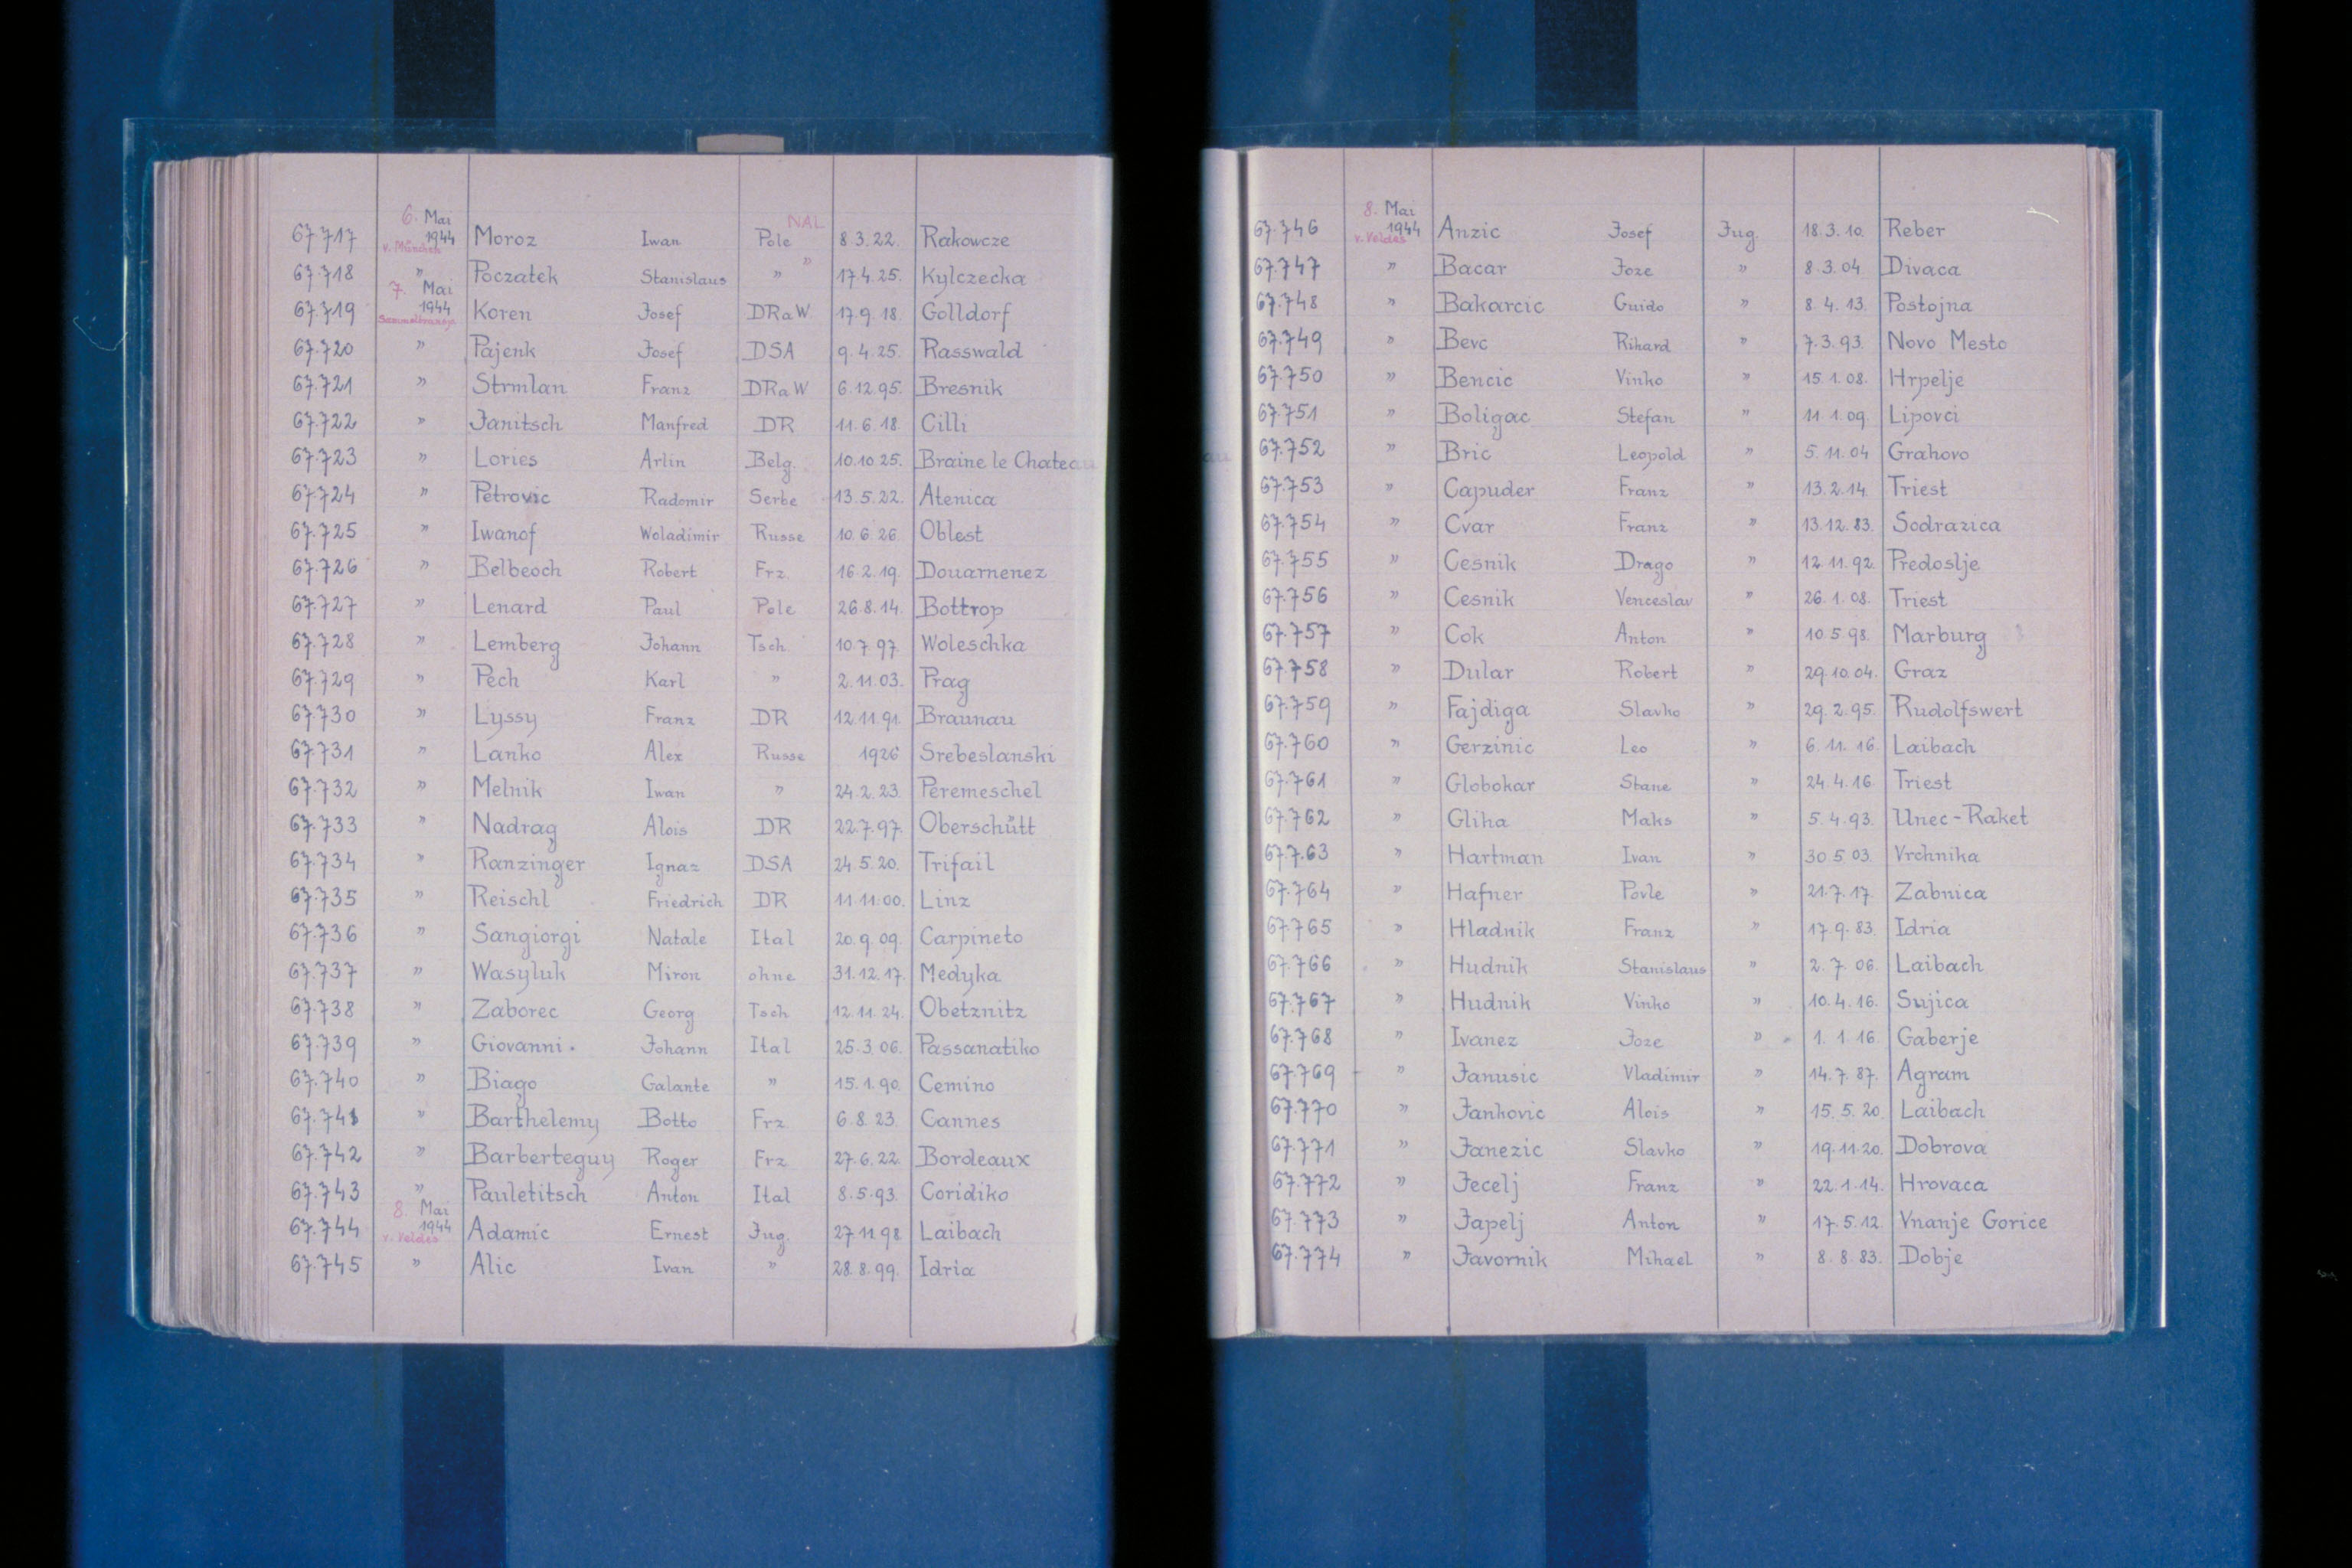 67.717 6. Mai 1944 v. München Moroz Iwan Pole NAL 8.3.22. Rakowcze
67.718 " Poczatek Stanislaus " " 17.4.25. Kylczecka
67.719 7. Mai 1944 Koren Josef DRaW 17.9.18. Golldorf
67.720 " Pajenk Josef DSA 9.4.25. Rasswald
67.721 " Strmlan Franz DRaW 6.12.95. Bresnik
67.722 " Janitsch Manfred DR 11.6.18. Cilli
67.723 " Lories Arlin Belg. 10.10.25. Braine le Chateau
67.724 " Petrovic Radomir Serbe 13.5.22. Atenica
67.725 " Iwanof Woladimir Russe 10.6.26. Oblest
67.726 " Belbeoch Robert Frz. 16.2.19. Douarnenez
67.727 " Lenard Paul Pole 26.8.14. Bottrop
67.728 " Lemberg Johann Tsch. 10.7.97. Woleschka
67.729 " Pech Karl " 2.11.03. Prag
67.730 " Lyssy Franz DR 12.11.91. Braunau
67.731 " Lanko Alex Russe 1926 Srebeslanski
67.732 " Melnik Iwan " 24.2.23. Peremeschel
67.733 " Nadrag Alois DR 22.7.97. Oberschütt
67.734 " Ranzinger Ignaz DSA 24.5.20. Trifail
67.735 " Reischl Friedrich DR 11.11.00. Linz
67.736 " Sangiorgi Natale Ital 20.9.09. Carpineto
67.737 " Wasyluk Miron ohne 31.12.17. Medyka
67.738 " Zaborec Georg Tsch 12.11.24. Obetznitz
67.739 " Giovanni. Johann Ital 25.3.06. Passanatiko
67.740 " Biago Galante " 15.1.90. Cemino
67.741 " Barthelemy Botto Frz. 6.8.23. Cannes
67.742 " Barberteguy Roger Frz. 27.6.22. Bordeaux
67.743 " Pauletitsch Anton Ital 8.5.93. Coridiko
67.744 8. Mai 1944 v. Veldes Adamic Ernest Jug. 27.11.98 Laibach
67.745 " Alic Ivan " 28.8.99. Idria
67.746 8. Mai 1944 v. Veldes Anzic Josef Jug. 18.3.10. Reber
67.747 " Bacar Joze " 8.3.04. Divaca
67.748 " Bakarcic Guido " 8.4.13. Postojna
67.749 " Bevc Rihard " 7.3.93. Novo Mesto
67.750 " Bencic Vinko " 15.1.08. Hrpelje
67.751 " Boligac Stefan " 11.1.09. Lipovci
67.752 " Bric Leopold " 5.11.04 Grahovo
67.753 " Capuder Franz " 13.2.14. Triest
67.754 " Cvar Franz " 13.12.83. Sodrazica
67.755 " Cesnik Drago " 12.11.92. Predoslje
67.756 " Cesnik Venceslav " 26.1.08. Triest
67.757 " Cok Anton " 10.5.98. Marburg
67.758 " Dular Robert " 29.10.04. Graz
67.759 " Fajdiga Slavko " 29.2.95. Rudolfswert
67.760 " Gerzinic Leo " 6.11.16. Laibach
67.761 " Globokar Stane " 24.4.16 Triest
67.762 " Gliha Maks " 5.4.93. Unec-Raket
67.763 " Hartman Ivan " 30.5.03. Vrchnika
67.764 " Hafner Povle " 21.7.17. Zabnica
67.765 " Hladnik Franz " 17.9.83. Idria
67.766 " Hudnik Stanislaus " 2.7.06. Laibach
67.767 " Hudnik Vinko " 10.4.16. Sujica
67.768 " Ivanez Joze " 1.1.16. Gaberje
67.769 " Janusic Vladimir " 14.7.87. Agram
67.770 " Jankovic Alois " 15.5.20. Laibach
67.771 " Janezic Slavko " 19.11.20. Dobrova
67.772 " Jecelj Franz " 22.1.14. Hrovaca
67.773 " Japelj Anton " 17.5.12. Vnanje Gorice
67.774 " Javornik Mihael " 8.8.83. Dobje